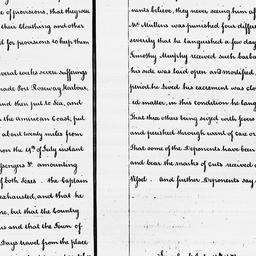 of provisions, that they were
their cloathing and other
and for provisions to keep them
several weeks severe sufferings
made for Roseway Harbour
and then put to Sea, and
the American Coast, put
about twenty miles from
upon the 4th of July instant
passengers amounting
of both Sexes. the Captain
exhausted, and that he
but that the Country
and that the Town of
Days travel from the place
ments believe, they never seeing him af
Mr. Mullens was punished four differ
severity that he languished a few day
Timothy Murphy received such barba
his side was laid open and mortified,
period he lived his excrement was
ed matter, in this condition he lang
That three others being seized with fevers
and perished through want of care or
That some of the Deponents have been
and bear the marks of cuts received
and further Deponents say